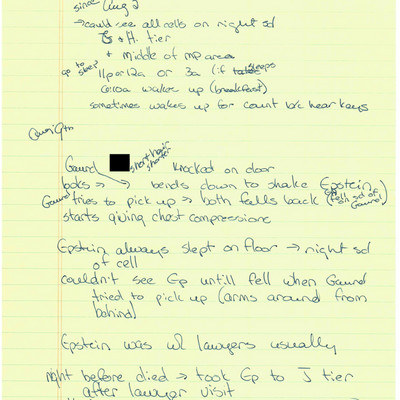 since Aug 2
→ could see all cells on right sd
& H. tier
+ middle of mp area
go to sleep 11p or 12a or 3a (if sleeps
6:10a wake up (breakfast)
sometimes wakes up for count b/c hear keys
Guard short hair shorter knocked on door
looks → bends down to shake Epstein
Guard tries to pick up → both falls back (Ep fell sd of Guard)
starts giving chest compressions
Epstein always slept on floor → right sd
of cell
couldn't see Ep untill fell when Guard
tried to pick up (arms around from
behind)
Epstein was w/ lawyers usually
right before died → took Ep to J tier
after lawyer visit